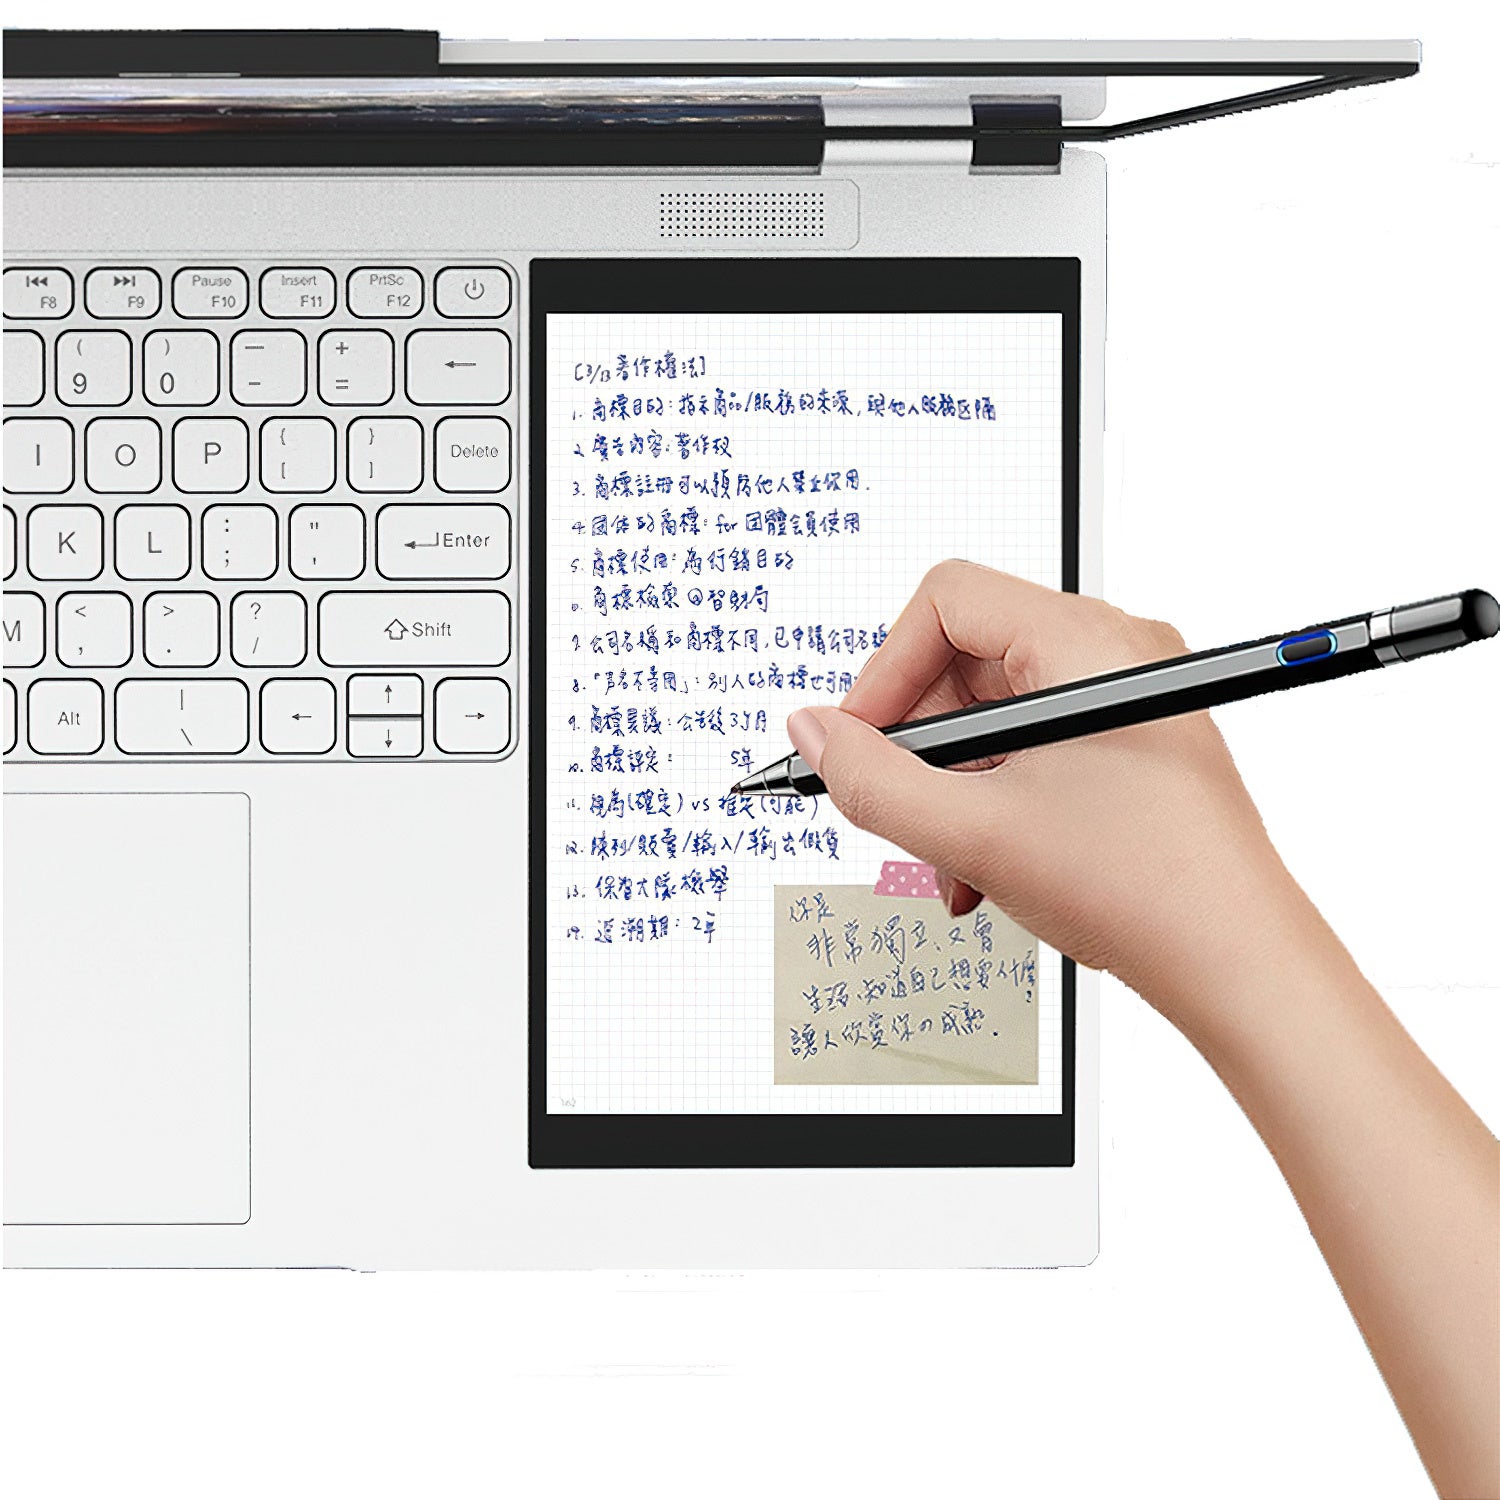 F8 F9 Pause F10 Insert F11 PrtSc F12
( 9 ) 0 — - + = ←
I O P { [ } ] Delete
K L : ; " ' Enter
M < , > . ? / Shift
Alt | \ ← ↑ ↓ →
[3/13 著作權法]
1. 商標目的:指示商品/服務的來源,與他人服務區隔
2. 廣告內容:著作權
3. 商標註冊可以預防他人禁止使用.
4. 团体的商標: for 团體會員使用
5. 商標使用:為行銷目的
6. 商標檢索 智財局
7. 公司名稱和商標不同,已申請公司名稱
8.「声名不專用」:別人的商標也可用
9. 商標異議:公告後3個月
10. 商標評定: 5年
11. 視為(確定) vs 推定(可能)
12. 陳列/販賣/輸入/輸出假貨
13. 保智大隊檢舉
14. 追溯期:2年
你是
非常獨立、又會
生活、知道自己想要什麼
讓人欣賞你の成熟.